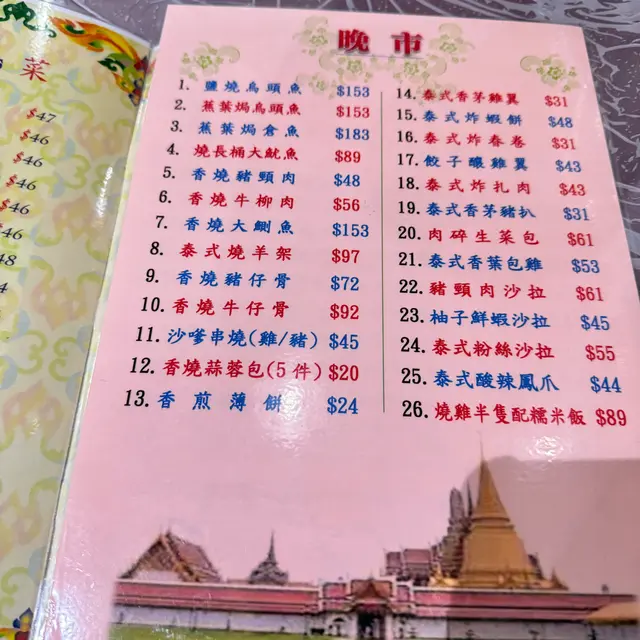 菜
$47
$46
$46
$46
$46
晚市
1. 鹽燒烏頭魚 $153
2. 蕉葉焗烏頭魚 $153
3. 蕉葉焗倉魚 $183
4. 燒長桶大魷魚 $89
5. 香燒豬頸肉 $48
6. 香燒牛柳肉 $56
7. 香燒大鯻魚 $153
8. 泰式燒羊架 $97
9. 香燒豬仔骨 $72
10. 香燒牛仔骨 $92
11. 沙嗲串燒(雞/豬) $45
12. 香燒蒜蓉包(5件) $20
13. 香煎薄餅 $24
14. 泰式香茅雞翼 $31
15. 泰式炸蝦餅 $48
16. 泰式炸春卷 $31
17. 餃子釀雞翼 $43
18. 泰式炸扎肉 $43
19. 泰式香茅豬扒 $31
20. 肉碎生菜包 $61
21. 泰式香葉包雞 $53
22. 豬頸肉沙拉 $61
23. 柚子鮮蝦沙拉 $45
24. 泰式粉絲沙拉 $55
25. 泰式酸辣鳳爪 $44
26. 燒雞半隻配糯米飯 $89